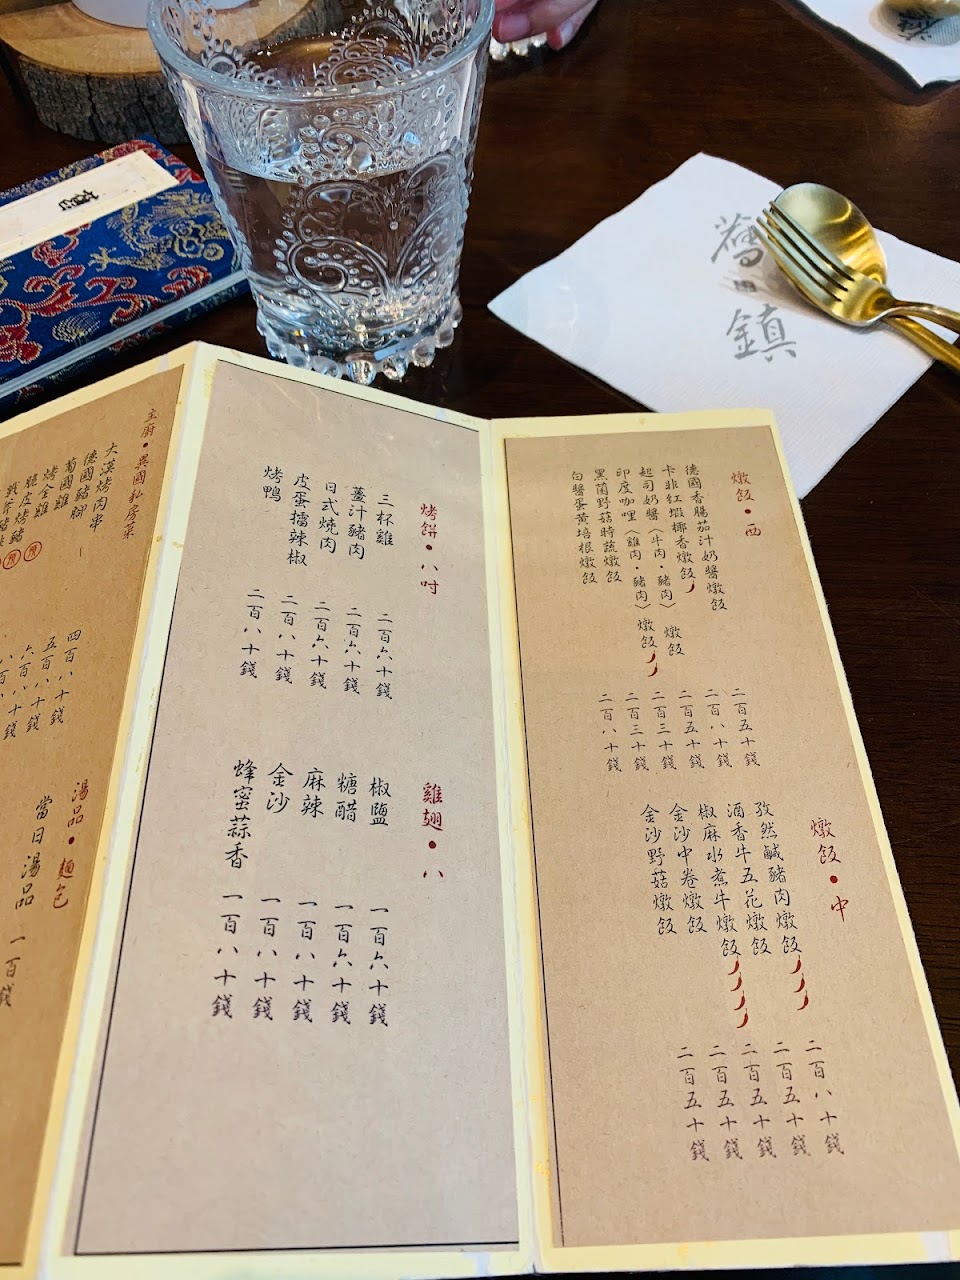 舊
鎮
燉飯•西
德國香腸茄汁奶醬燉飯
卡菲紅蝦椰香燉飯
起司奶醬〈牛肉・豬肉〉燉飯
印度咖哩〈雞肉・豬肉〉燉飯
黑菌野菇時蔬燉飯
白醬蛋黃培根燉飯
二百五十錢
二百八十錢
二百五十錢
二百三十錢
二百三十錢
二百八十錢
燉飯•中
孜然鹹豬肉燉飯
酒香牛五花燉飯
椒麻水煮牛燉飯
金沙中卷燉飯
金沙野菇燉飯
二百八十錢
二百五十錢
二百五十錢
二百五十錢
二百五十錢
烤餅•八吋
三杯雞
薑汁豬肉
日式燒肉
皮蛋擂辣椒
烤鴨
二百六十錢
二百六十錢
二百六十錢
二百八十錢
二百八十錢
雞翅•八
椒鹽
糖醋
麻辣
金沙
蜂蜜蒜香
一百六十錢
一百六十錢
一百八十錢
一百八十錢
一百八十錢
主廚•異國私房菜
大漠烤肉串
德國豬腳
葡國雞
烤全雞
脆皮烤豬 預
戰斧豬
四百八十錢
五百八十錢
六百八十錢
湯品•麵包
當日湯品
一百錢